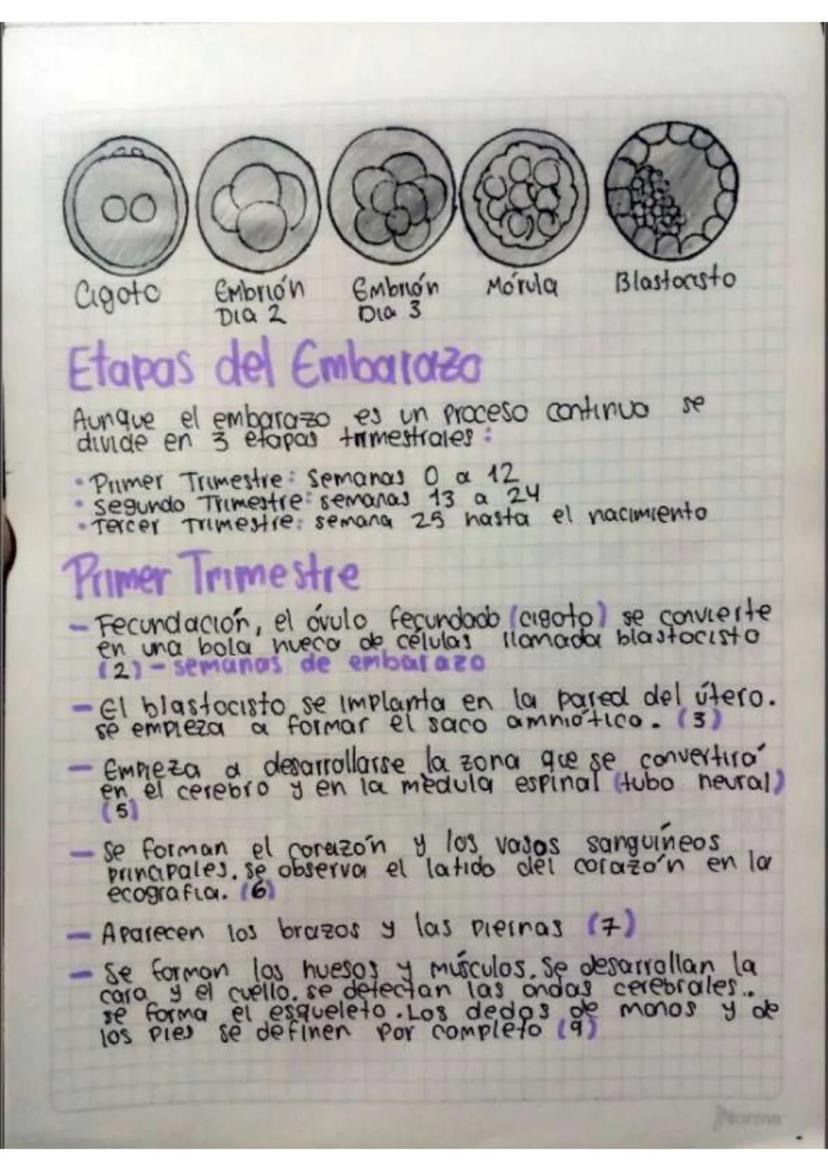 Cigoto
Embrión
Dia 2
Embrión
Dia 3
Mórula
Blastocisto
Etapas del Embarazo
Aunque el embarazo es un proceso continuo se
divide en 3 etapas trimestrales:
• Primer Trimestre: Semanas 0 a 12
• Segundo Trimestre: semanas 13 a 24
• Tercer Trimestre: semana 25 hasta el nacimiento
Primer Trimestre
- Fecundación, el óvulo fecundado (cigoto) se convierte
en una bola hueca de células llamada blastocisto
(2) - semanas de embarazo
- El blastocisto se implanta en la pared del útero.
se empieza a formar el saco amniótico. (3)
- Empieza a desarrollarse la zona que se convertirá
en el cerebro y en la médula espinal (tubo neural)
(5)
- Se forman el corazón y los vasos sanguíneos
principales. se observa el latido del corazón en la
ecografia. (6)
- Aparecen los brazos y las piernas (7)
- Se forman los huesos y músculos. Se desarrollan la
cara y el cuello. se detectan las ondas cerebrales..
se forma el esqueleto. Los dedos de manos y de
los pies se definen por completo (9)
Norma